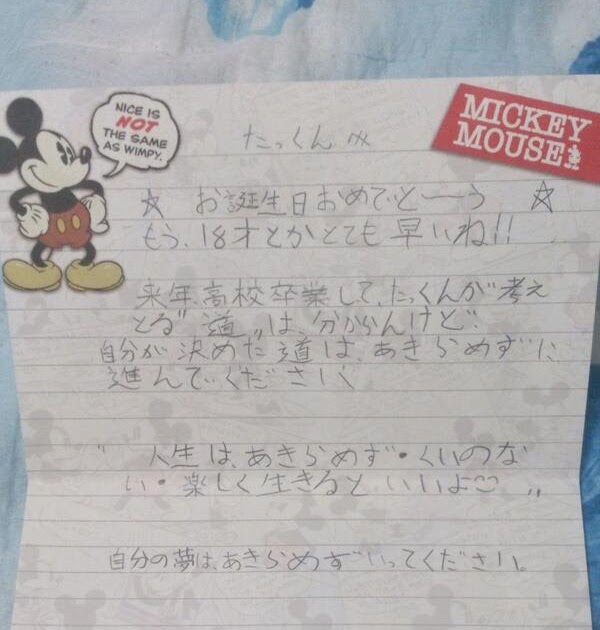 NICE IS
NOT
THE SAME
AS WIMPY.
MICKEY
MOUSE!
たっくん
☆ お誕生日おめでとーう ☆
もう、18才とかとても早いね!!
来年、高校卒業して、たっくんが考え
とる〝道〟は、分からんけど
自分が決めた道は、あきらめずに
進んでください
〝人生は、あきらめず・くいのな
い・楽しく生きるといいよ〟
自分の夢は、あきらめずいってください。